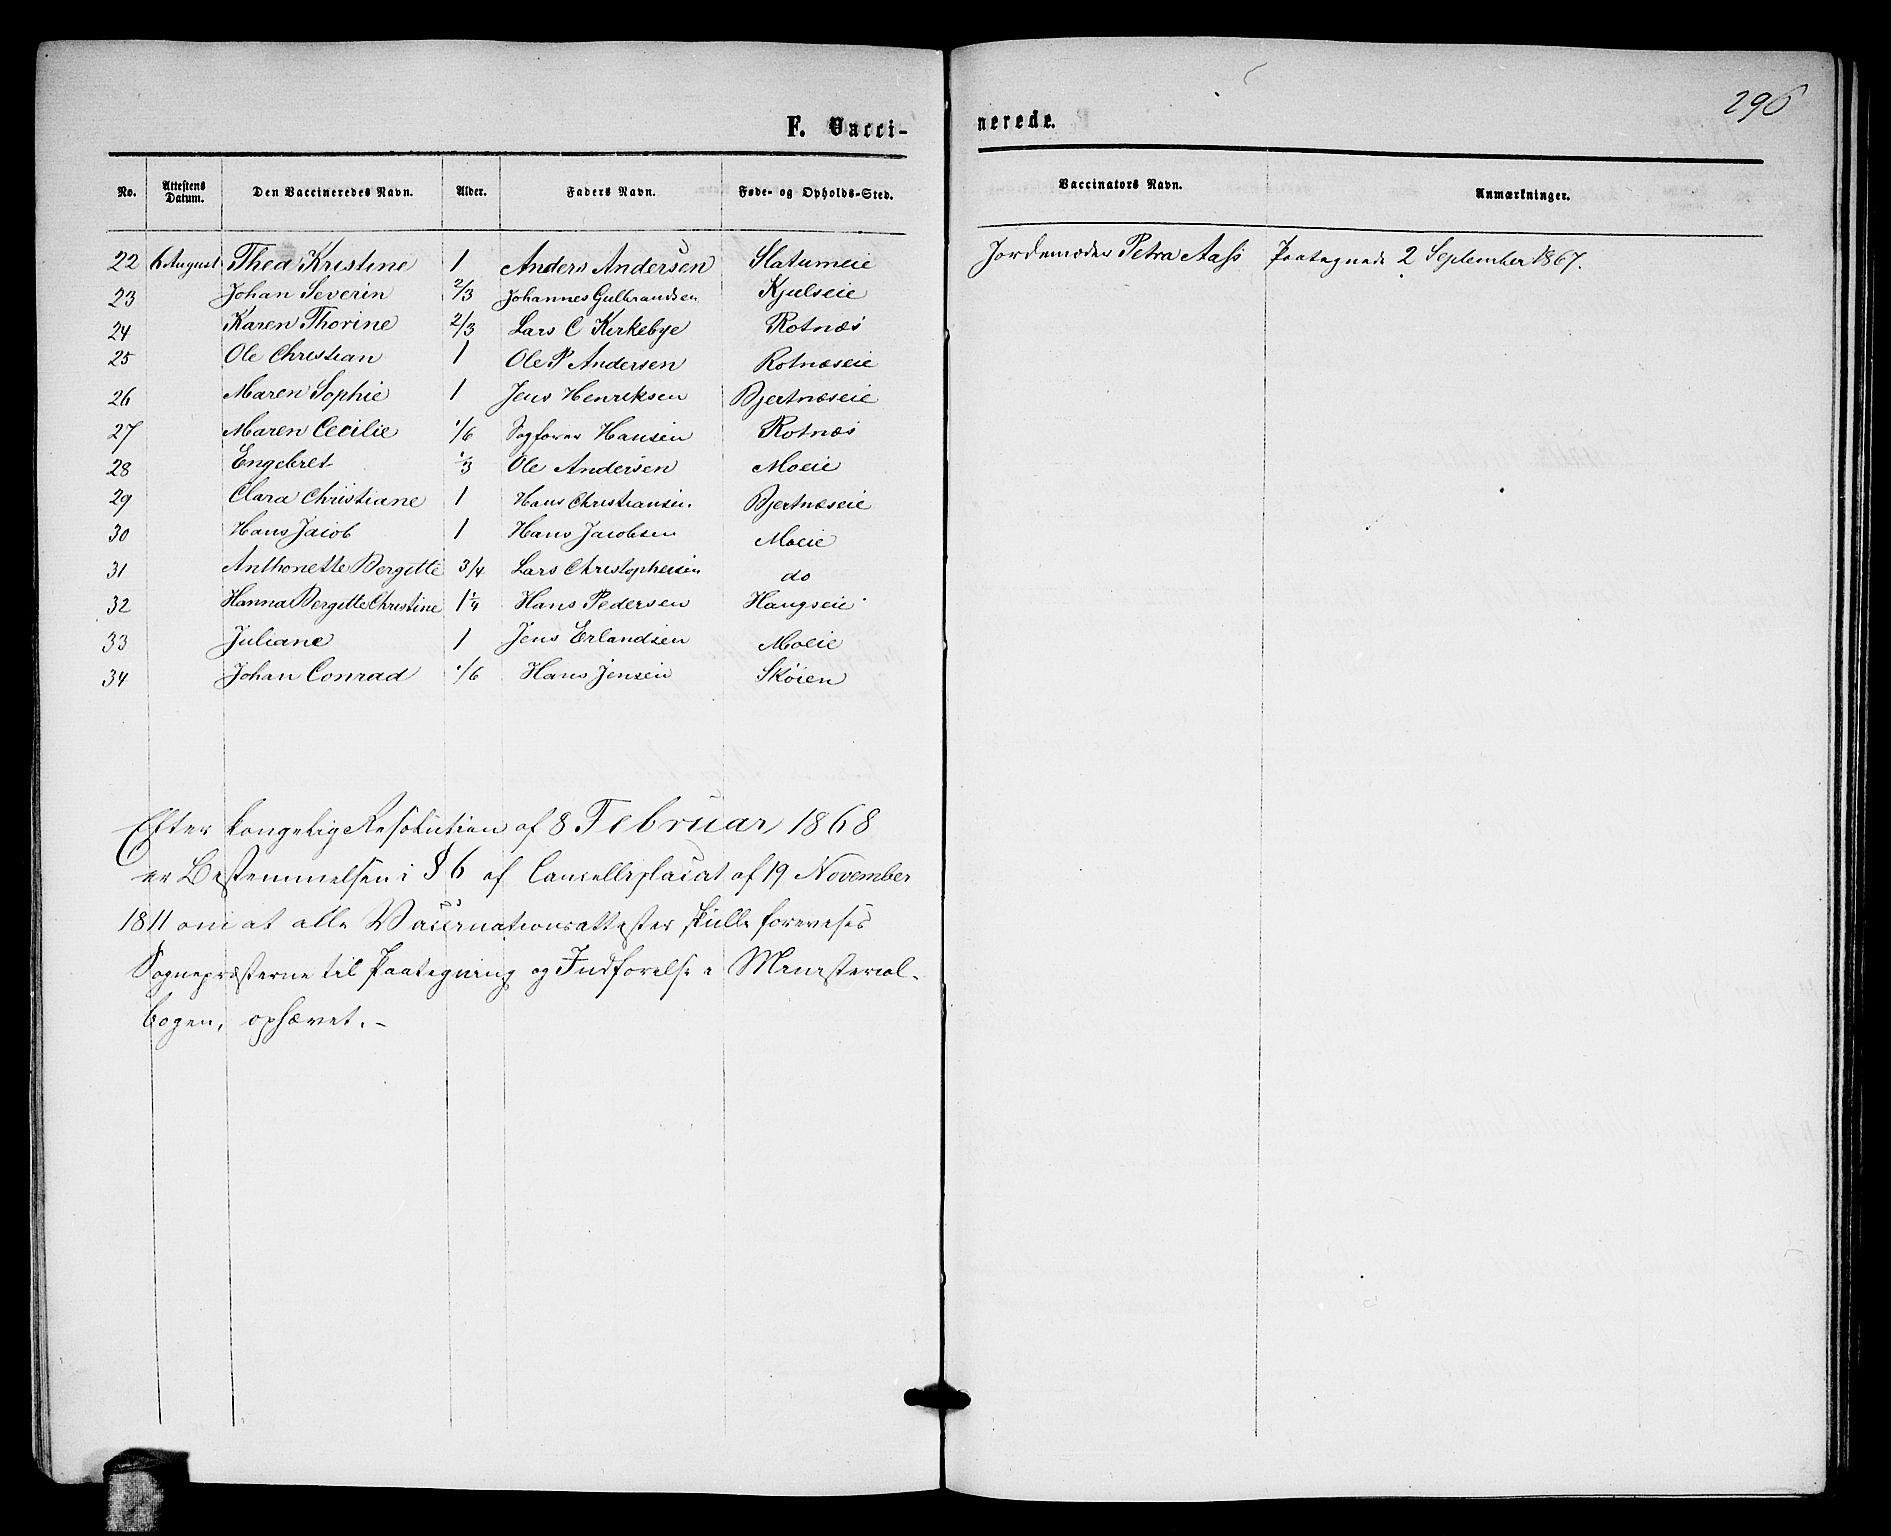 296
F. Vacci-
nerede.
No. Attestens Datum. Den Vaccineredes Navn. Alder. Faders Navn. Føde- og Opholds-Sted. Vaccinators Navn. Anmærkninger.
22 6 August Thea Kristine 1 Anders Andersen Slatumeie Jordemoder Petra Aass Paategnede 2 September 1867.
23 Johan Severin 2/3 Johannes Gulbrandsen Kjulseie
24 Karen Thorine 2/3 Lars C Kirkebye Rotnæs
25 Ole Christian 1 Ole P Andersen Rotnæseie
26 Maren Sophie 1 Jens Henriksen Bjertnæseie
27 Maren Cecilie 1/6 Sagfører Hansen Rotnæs
28 Engebret 1/3 Ole Andersen Moeie
29 Clara Christiane 1 Hans Christiansen Bjertnæseie
30 Hans Jacob 1 Hans Jacobsen Moeie
31 Anthonette Bergitte 3/4 Lars Christophersen do
32 Hanna Bergitte Christine 1 1/4 Hans Pedersen Haugseie
33 Juliane 1 Jens Erlandsen Moeie
34 Johan Conrad 1/6 Hans Jensen Skøien
Efter kongelig Resolution af 8 Februar 1868
er Bestemmelsen i § 6 af Cancelliplacat af 19 November
1811 om at alle Vaccinationsattester skulle forevises
Sognepræsterne til Paategning og Indførelse i Ministerial-
bogen, ophævet. -